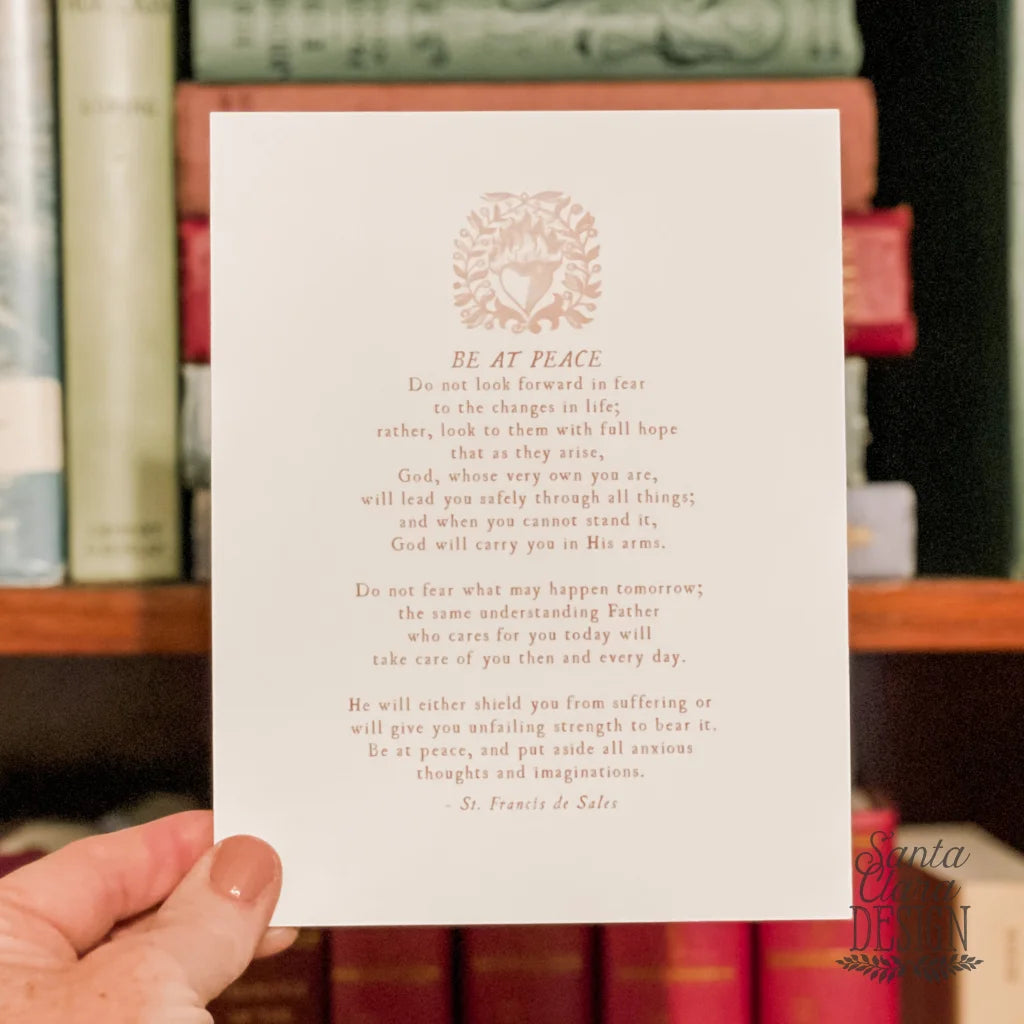 BE AT PEACE
Do not look forward in fear
to the changes in life;
rather, look to them with full hope
that as they arise,
God, whose very own you are,
will lead you safely through all things;
and when you cannot stand it,
God will carry you in His arms.
Do not fear what may happen tomorrow;
the same understanding Father
who cares for you today will
take care of you then and every day.
He will either shield you from suffering or
will give you unfailing strength to bear it.
Be at peace, and put aside all anxious
thoughts and imaginations.
- St. Francis de Sales
Santa
Clara
DESIGN